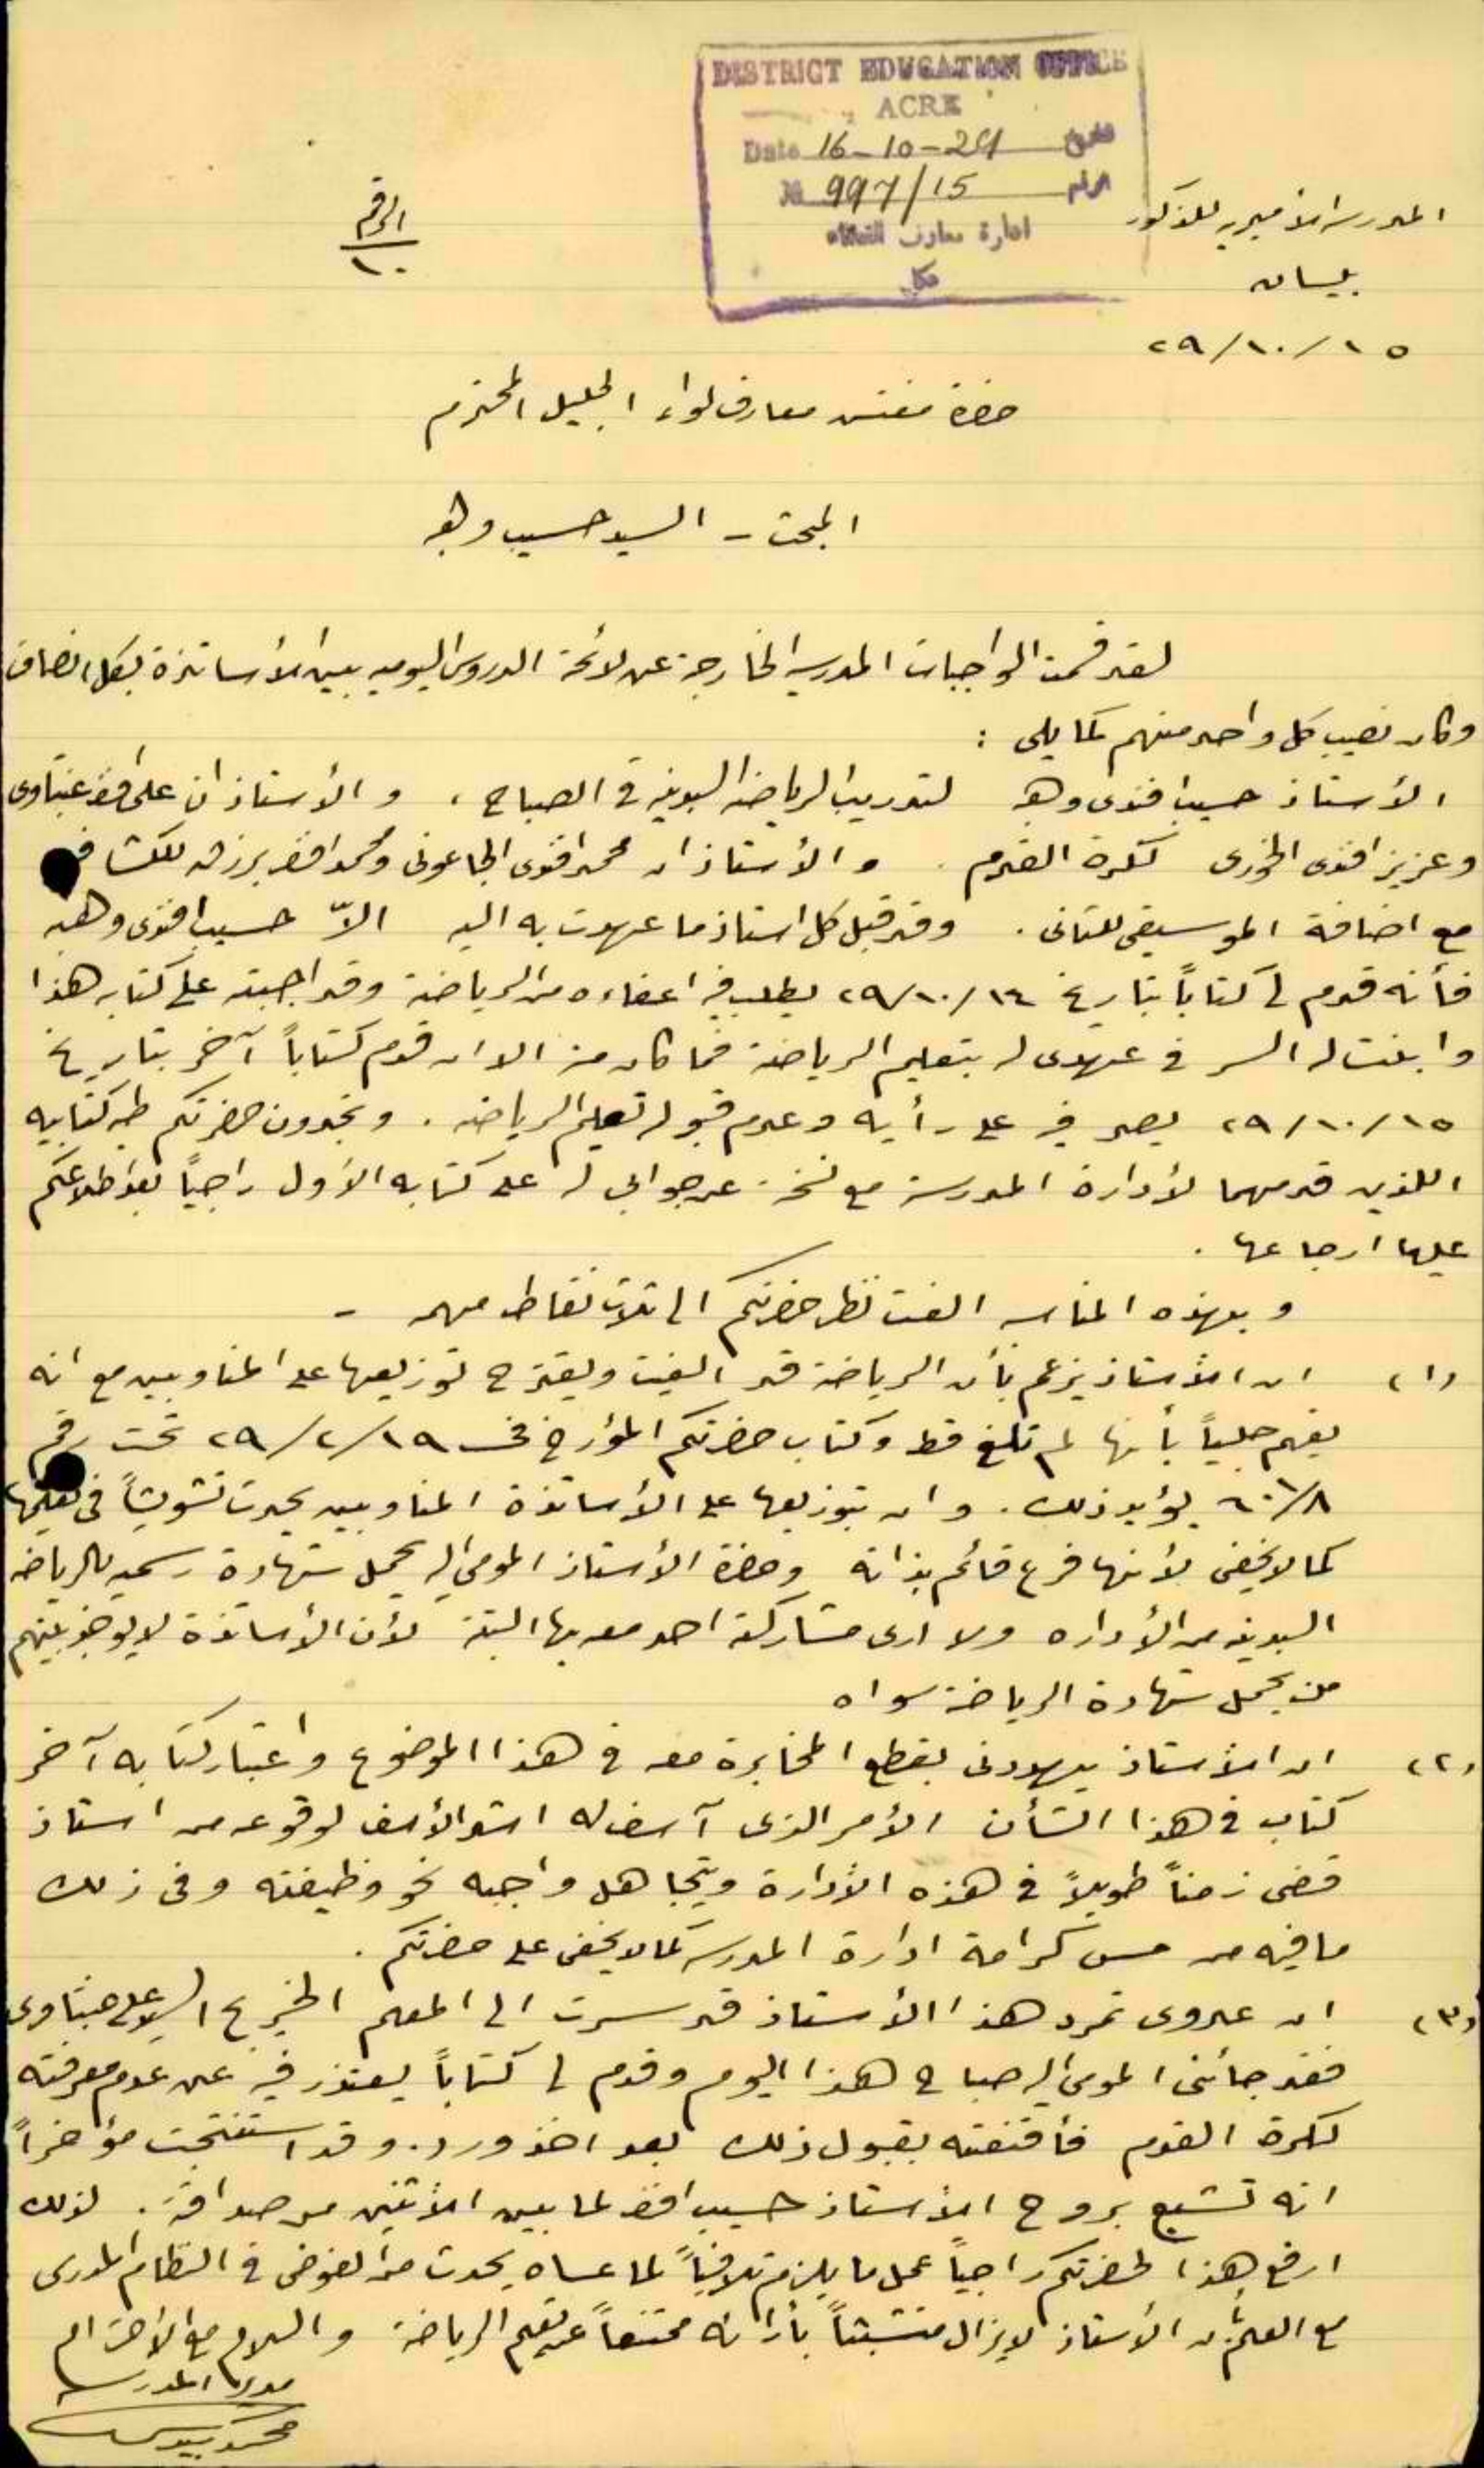 DISTRICT EDUCATION OFFICE
ACRE
Date 16-10-29 تاريخ
№ 997/15 الرقم
ادارة معارف القضاء
عكا
المدرسة الأميرية للذكور
بيسان
٢٩/١٠/١٥
الرقم
١٠
حضرة مفتش معارف لواء الجليل المحترم
المبحث - السيد حسيب وهبه
لقد قسمت الواجبات المدرسية الخارجة عن لائحة الدروس اليومية بين الأساتذة بكل انصاف
وكان نصيب كل واحد منهم كما يلي :
الأستاذ حسيب افندي وهبه لتدريب الرياضة البدنية في الصباح ، و الأستاذان علي افندي
وعزيز افندي الخوري لكرة القدم . و الأستاذان محمد افندي الجاعوني ومحمد افندي برزق للكشافة
مع اضافة الموسيقى للثاني . وقد قبل كل استاذ ما عهدت به اليه الاّ حسيب افندي وهبه
فأنه قدم لي كتاباً بتاريخ ٢٩/١٠/١٤ يطلب فيه اعفاءه من الرياضة وقد اجبته على كتابه هذا
وابنت له السر في عهدي له بتعليم الرياضة فما كان منه الا ان قدم كتاباً آخر بتاريخ
٢٩/١٠/١٥ يصر فيه على رأيه وعدم قبوله تعليم الرياضة . وتجدون حضرتكم طيه كتابيه
اللذين قدمهما لأدارة المدرسة مع نسخة عن جوابي له على كتابه الأول راجياً بعد اطلاعكم
عليها ارجاعها .
و بهذه المناسبة الفت نظر حضرتكم الى ثلاث نقاط مهمة -
(١) ان الأستاذ يزعم بأن الرياضة قد الغيت ويقترح توزيعها على المناوبين مع انه
يفهم جلياً بأنها لم تلغ قط وكتاب حضرتكم المؤرخ في ٢٩/٢/١٩ تحت رقم
٦٠١/٨ يؤيد ذلك . و ان توزيعها على الأساتذة المناوبين يحدث تشويشاً في تعليمها
كما لا يخفى لأنها فرع قائم بذاته وحضرة الأستاذ المومى اليه يحمل شهادة رسمية بالرياضة
البدنية من الأداره ولا ارى مشاركة احد معه بها البتة لأن الأساتذة لا يوجد بينهم
من يحمل شهادة الرياضة سواه
(٢) ان الأستاذ يهددني بقطع المخابرة معه في هذا الموضوع واعتبار كتابه آخر
كتاب في هذا الشأن الأمر الذي آسف له اشد الأسف لوقوعه من استاذ
قضى زمناً طويلاً في هذه الأدارة ويتجاهل واجبه نحو وظيفته وفي ذلك
ما فيه من مس كرامة ادارة المدرسة كما لا يخفى على حضرتكم .
(٣) ان عدوى تمرد هذا الأستاذ قد سرت الى المعلم الخريج السيد علي
فقد جائني المومى اليه صباح هذا اليوم وقدم لي كتاباً يعتذر فيه عن عدم معرفته
لكرة القدم فأقنعته بقبول ذلك بعد اخذ ورد . وقد استنتجت مؤخراً
انه تشبع بروح الأستاذ حسيب افندي لما بين الأثنين من صداقة . لذلك
ارفع هذا لحضرتكم راجياً عمل ما يلزم تلافياً لما عساه يحدث من الفوضى في النظام المدرسي
مع العلم بأن الأستاذ لا يزال متشبثاً بأرائه ممتنعاً عن تعليم الرياضة و السلام مع الأحترام
مدير المدرسة